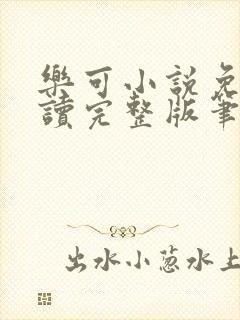 樂可小説免
讀完整版筆
出水小葱水上